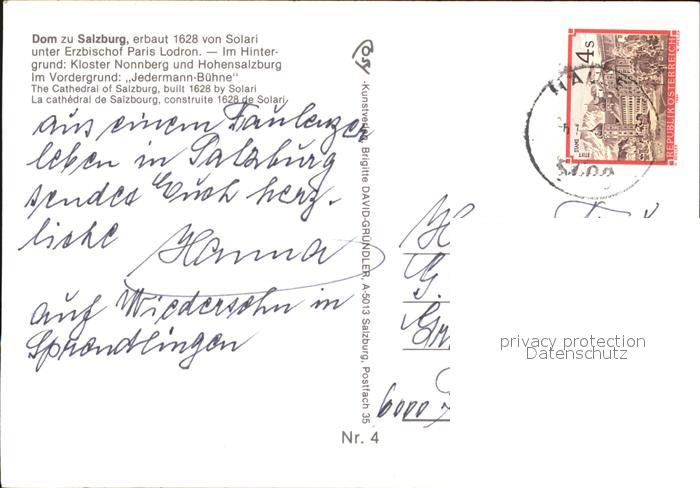 Dom zu Salzburg, erbaut 1628 von Solari
unter Erzbischof Paris Lodron. — Im Hinter-
grund: Kloster Nonnberg und Hohensalzburg
Im Vordergrund: „Jedermann-Bühne"
The Cathedral of Salzburg, built 1628 by Solari
La cathédral de Salzbourg, construite 1628 de Solari
aus einem Faulenzer
leben in Salzburg
sendet Euch herz-
liche
Hanna
auf Wiedersehn in
Sprendlingen
Kunstverlag Brigitte DAVID-GRÜNDLER, A-5013 Salzburg, Postfach 35
Nr. 4
4s
REPUBLIK ÖSTERREICH
STAMS
H
G.
6000
privacy protection
Datenschutz